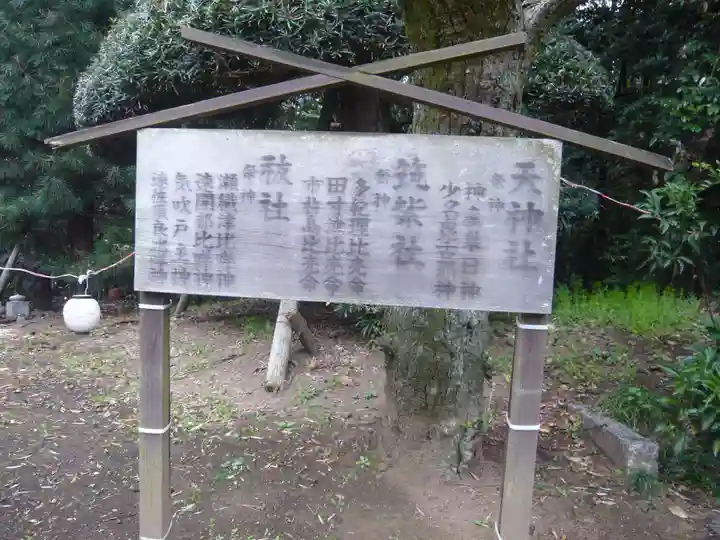 天神社
祭神
少名毘古那神
筑紫社
祭神
多紀理比売命
市杵島比売命
祓社
祭神
瀬織津比売神
速開都比売神
気吹戸主神
速佐須良比売神